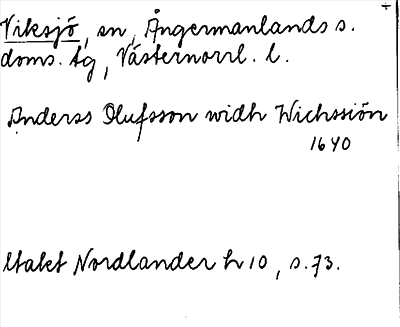 Viksjö, sn, Ångermanlands s.
doms. tg, Västernorrl. l.
Anderss Olufsson widh Wichssiön
1640
Utakt Nordlander h 10, s. 73.